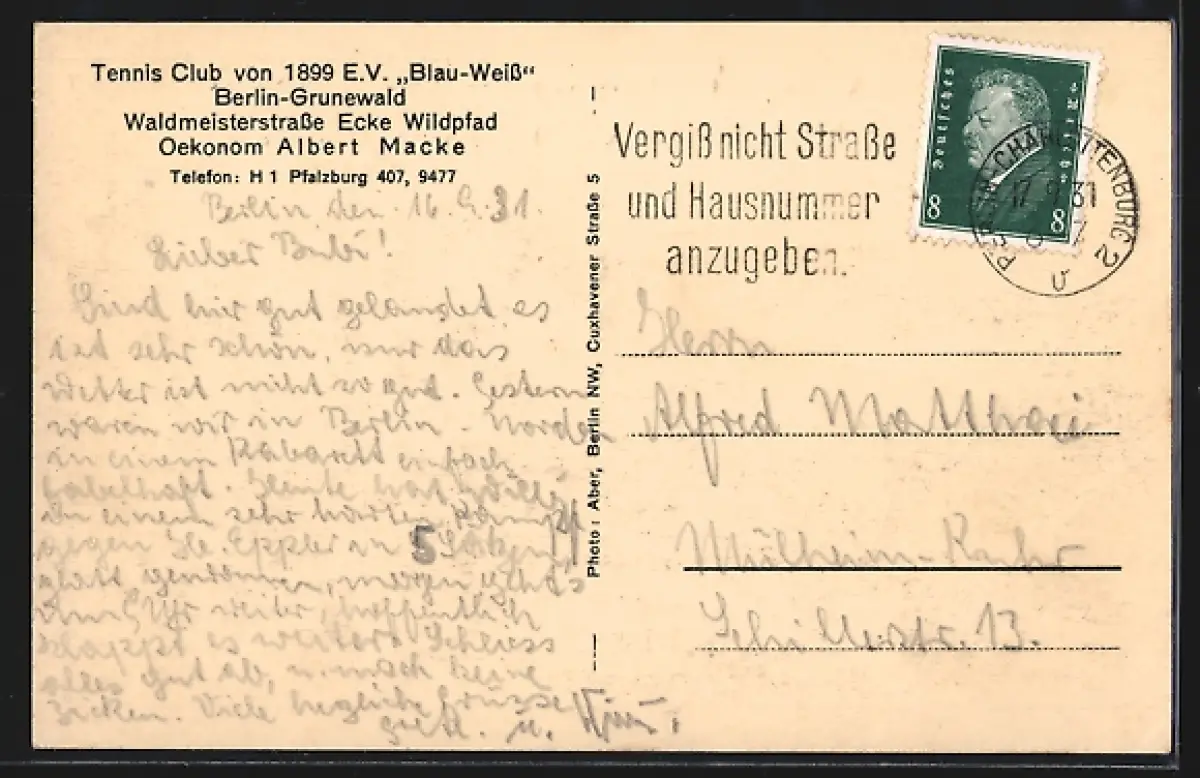 Tennis Club von 1899 E.V. „Blau-Weiß“
Berlin-Grunewald
Waldmeisterstraße Ecke Wildpfad
Oekonom Albert Macke
Telefon: H 1 Pfalzburg 407, 9477
Berlin den 16.9.31.
Lieber Bubi!
Sind hier gut gelandet es
ist sehr schön, nur das
Wetter ist nicht so gut. Gestern
waren wir in Berlin - Norden
in einem Kabarett einfach
fabelhaft. Heute hat
in einem sehr harten Kampf
gegen Eppler in 5 Sätzen
glatt gewonnen, morgen geht's
um Uhr weiter, hoffentlich
klappt es weiter. Schliess
alles gut ab, u. mach keine
Zicken. Viele herzliche Grüsse
u.
Photo: Aber, Berlin NW, Cuxhavener Straße 5
Vergiß nicht Straße
und Hausnummer
anzugeben.
Deutsches Reich
8 8
BERLIN-CHARLOTTENBURG 2
17.9.31
Herrn
Alfred Matthaei
Mülheim-Ruhr
Schillerstr. 13.